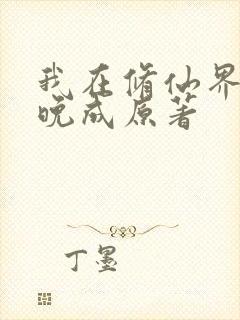 我在脩仙界
晚成原著
丁墨